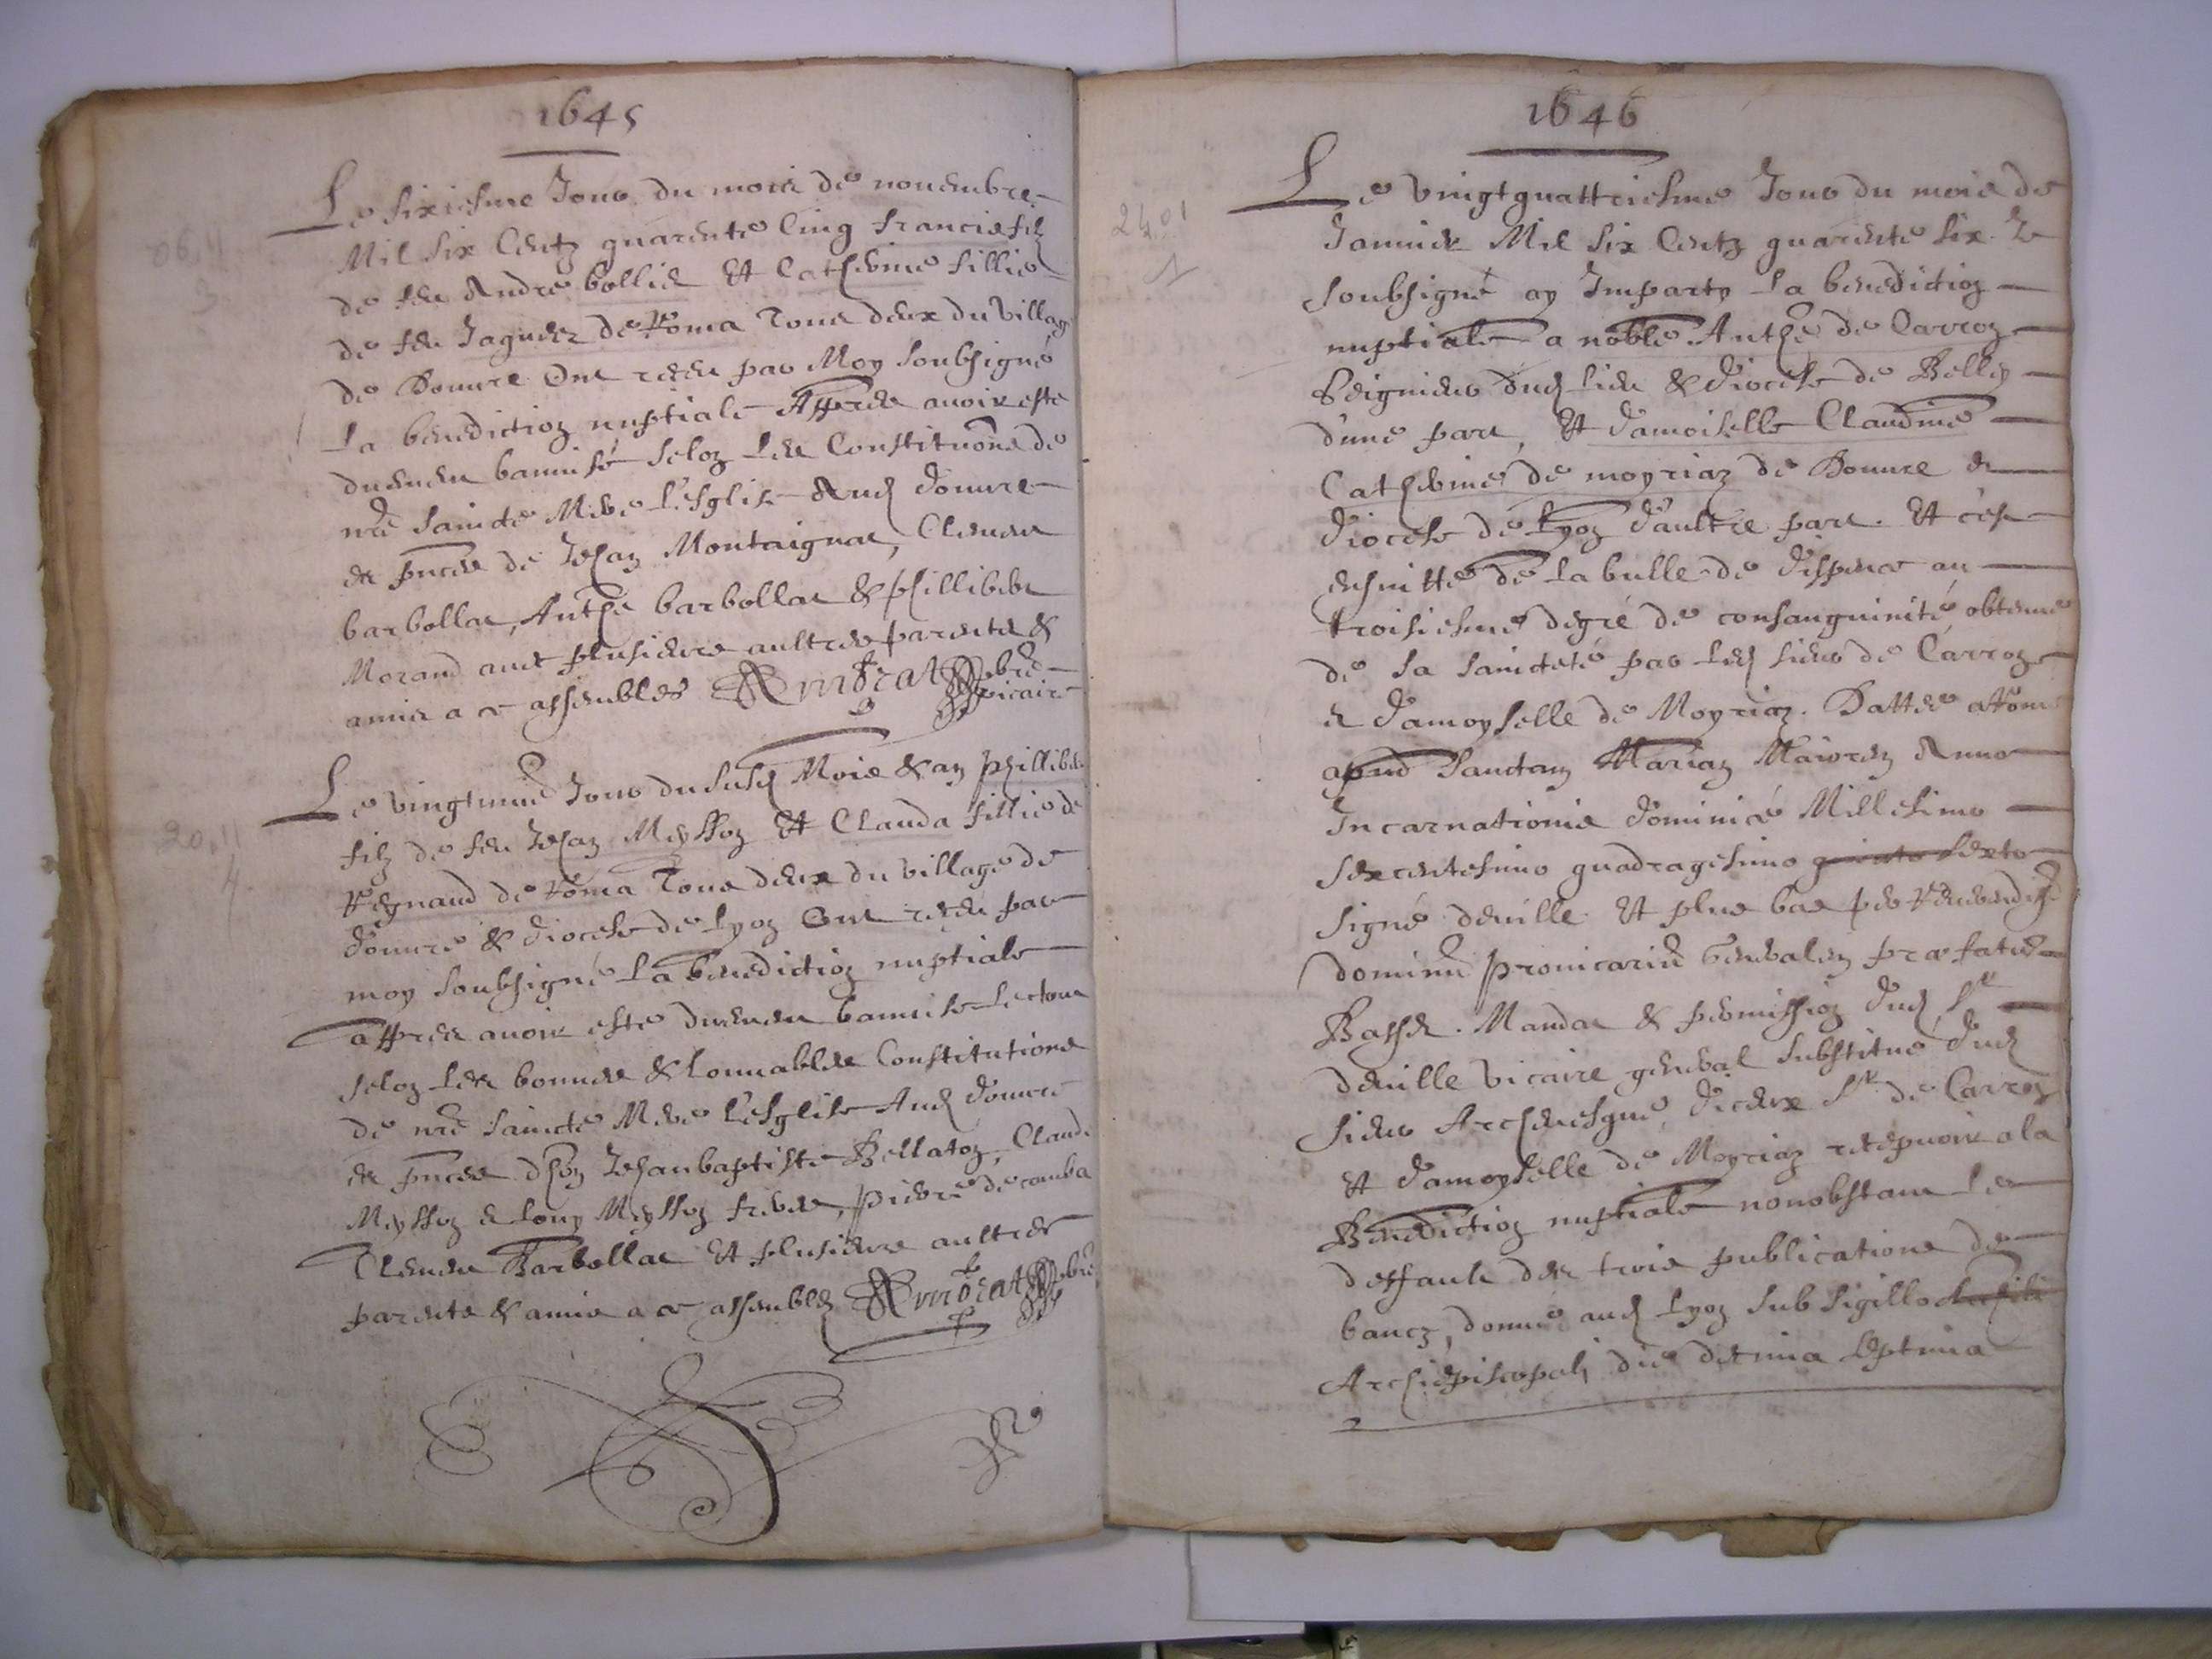 1645
Le sixiesme Jour du mois de novembre
Mil six Centz quarente Cinq francois filz
de feu Andre bollie Et Catherine fillie
de feu Jaques de Roma Tous deux du Villag
de Douvre Ont receu par Moy soubsigné
La benediction nuptiale Appres avoir esté
duement bannisé selon Les Constituons de
nre saincte Mere L'Esglise Aud douvre
Et pnces de Jehan Montaignat, Clement
barbollat, Anthe barbollat & phillibert
Morand avec plusieurs aultres parents &
amis a ce assembles pbre
vicaire
Le vingt Jour dususd Mois & an phillibe
filz de feu Jehan Meysson Et Clauda fillie de
Regnaud de Roma Tous deux du village de
douvre & diocese de Lyon Ont receu par
moy soubsigné La benediction nuptiale
appres avoir esté duement bannise
selon Les bonnes & Louuables Constitutions
de nre saincte Mere L'Esglise Aud douvre
Et pnces Jehanbaptiste Bellaton, Claude
Meysson & Louy Meysson freres, pierre decomba
Clement Barbollat Et plusieurs aultres
parents & amis a ce assembles pbre
1646
06.11
3
20.11
4
24.01
1
Le vingtquattriesme Jour du mois de
Januier Mil six Centz quarente six. Je
soubsigné ay Imparty La benediction
nuptiale a noble Anthe de Carron
Seigneur dud Lieu & diocese de Belley
d'une part, Et damoiselle Claudine
Catherine de moyriaz de Douvre &
diocese de Lyon d'aultre part. Et c'est
ensuitte de La bulle de dispence au
troisiesme degré de consanguinité obtenue
de sa saincteté par Led sieur de Carron
& damoyselle de Moyriaz. Dattée a Rome
apud sanctam Mariam Maiorem Anno
Incarnationis dominice Millesimo
sexcentesimo quadragesimo quinto sexto
signé deville Et plus bas per Reuerend
dominu prouicariu Generalem praefatu
Basset. Mandat & permission dud Sr
deville vicaire general substitué dud
sieur Archeuesque, diceux Sr de Carron
Et damoyselle de Moyriaz recepuoir a la
Benediction nuptiale nonobstant Le
deffault des trois publications de
bancz, donné aud Lyon sub sigillo
Archiepiscopali die decima septima